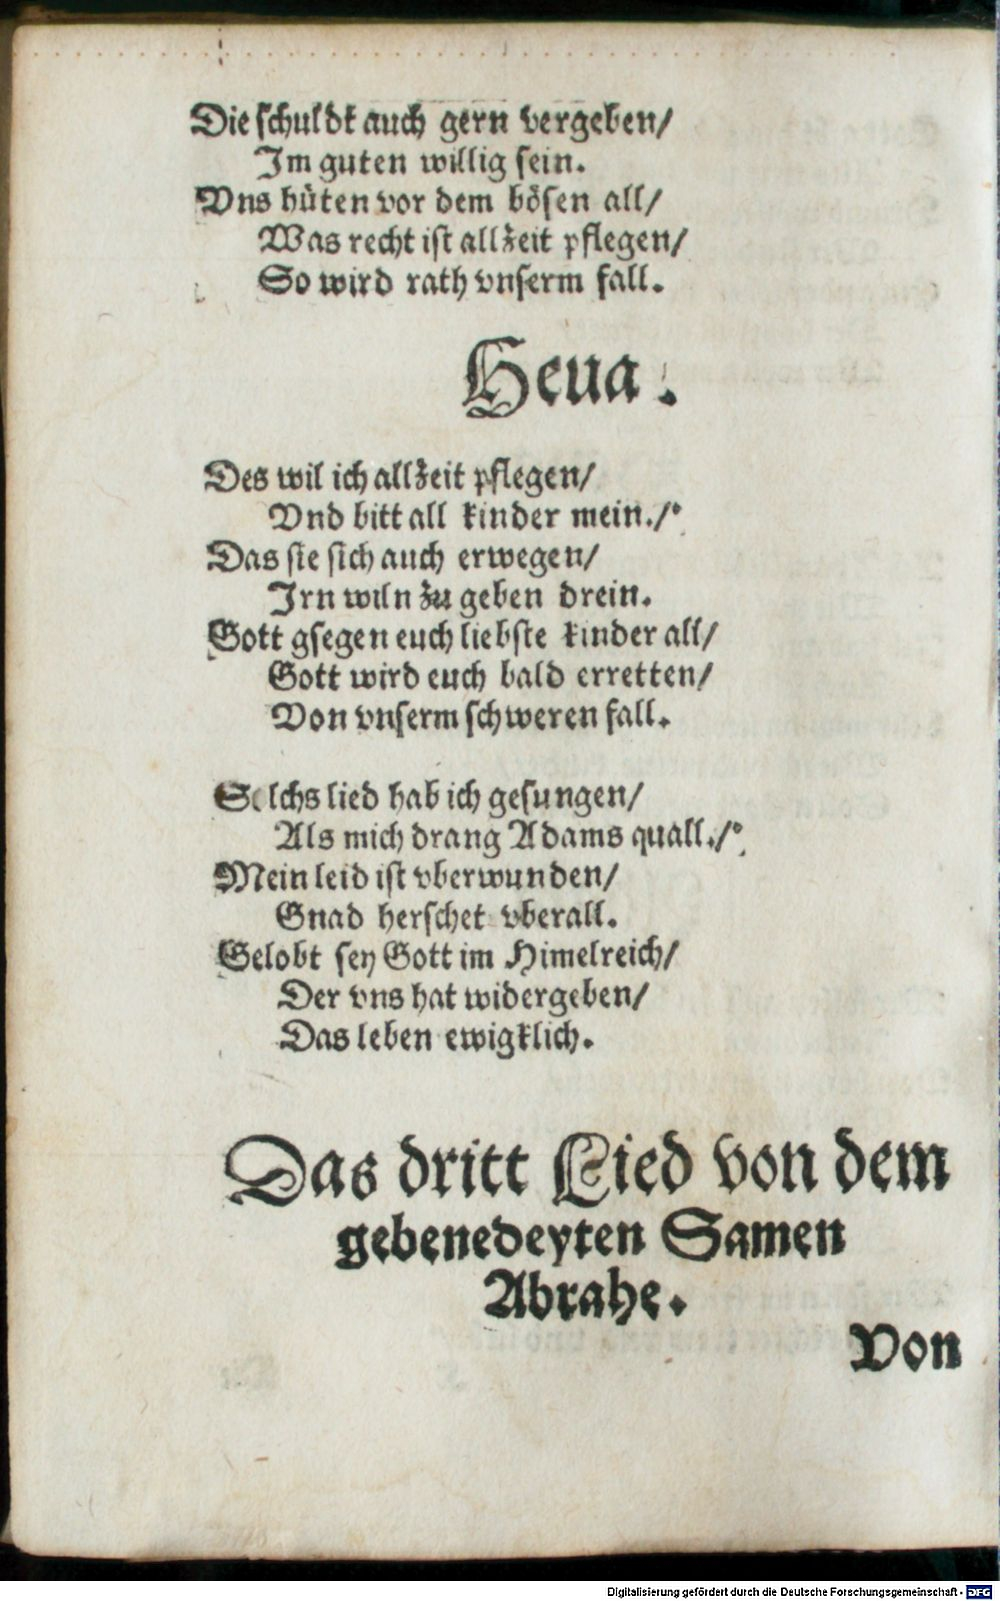 Die schuldt auch gern vergeben/
Im guten willig sein.
Vns hüten vor dem bösen all/
Was recht ist allzeit pflegen/
So wird rath vnserm fall.
Heua.
Des wil ich allzeit pflegen/
Vnd bitt all kinder mein./
Das sie sich auch erwegen/
Irn wiln zu geben drein.
Gott gsegen euch liebste kinder all/
Gott wird euch bald erretten/
Von vnserm schweren fall.
Solchs lied hab ich gesungen/
Als mich drang Adams quall./
Mein leid ist vberwunden/
Gnad herschet vberall.
Gelobt sey Gott im Himelreich/
Der vns hat widergeben/
Das leben ewigklich.
Das dritt Lied von dem
gebenedeyten Samen
Abrahe.
Von
Digitalisierung gefördert durch die Deutsche Forschungsgemeinschaft - DFG